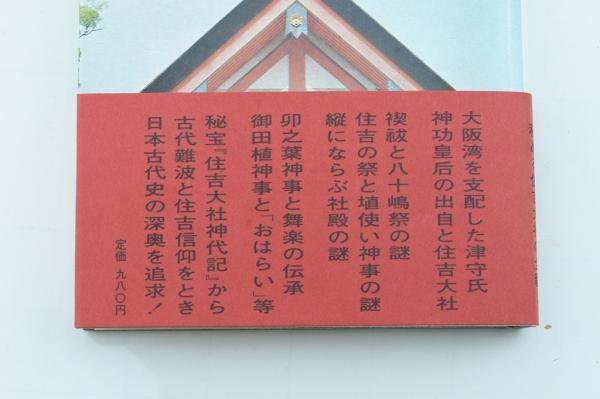 大阪湾を支配した津守氏
神功皇后の出自と住吉大社
禊祓と八十嶋祭の謎
住吉の祭と埴使い神事の謎
縦にならぶ社殿の謎
卯之葉神事と舞楽の伝承
御田植神事と「おはらい」等
秘宝『住吉大社神代記』から
古代難波と住吉信仰をとき
日本古代史の深奥を追求！
定価 九八〇円